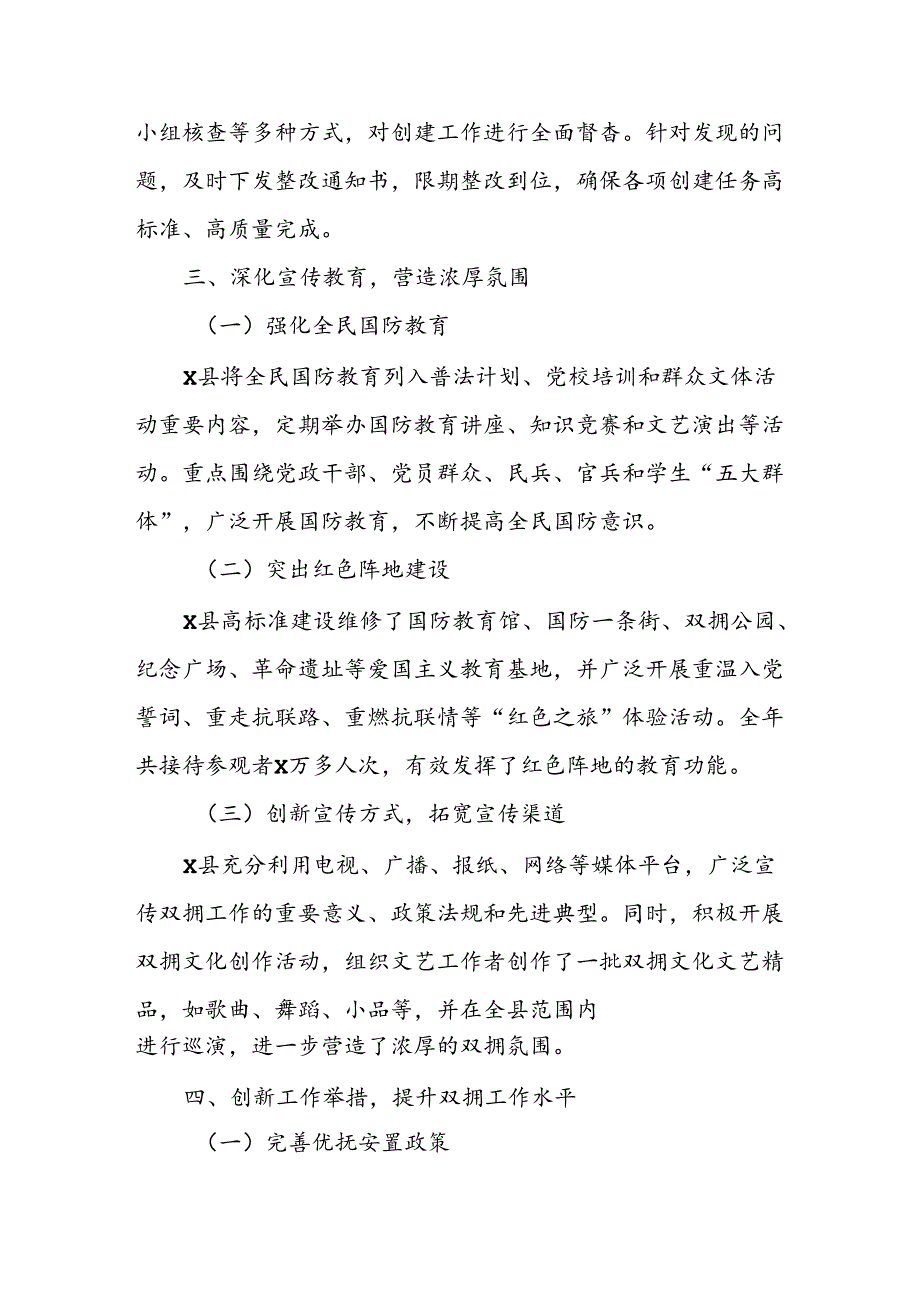 小组核查等多种方式，对创建工作进行全面督杳。针对发现的问
题，及时下发整改通知书，限期整改到位，确保各项创建任务高
标准、高质量完成。
三、深化宣传教育，营造浓厚氛围
（一）强化全民国防教育
X县将全民国防教育列入普法计划、党校培训和群众文体活
动重要内容，定期举办国防教育讲座、知识竞赛和文艺演出等活
动。重点围绕党政干部、党员群众、民兵、官兵和学生“五大群
体”，广泛开展国防教育，不断提高全民国防意识。
（二）突出红色阵地建设
X县高标准建设维修了国防教育馆、国防一条街、双拥公园、
纪念广场、革命遗址等爱国主义教育基地，并广泛开展重温入党
誓词、重走抗联路、重燃抗联情等“红色之旅”体验活动。全年
共接待参观者X万多人次，有效发挥了红色阵地的教育功能。
（三）创新宣传方式，拓宽宣传渠道
X县充分利用电视、广播、报纸、网络等媒体平台，广泛宣
传双拥工作的重要意义、政策法规和先进典型。同时，积极开展
双拥文化创作活动，组织文艺工作者创作了一批双拥文化文艺精
品，如歌曲、舞蹈、小品等，并在全县范围内
进行巡演，进一步营造了浓厚的双拥氛围。
四、创新工作举措，提升双拥工作水平
（一）完善优抚安置政策